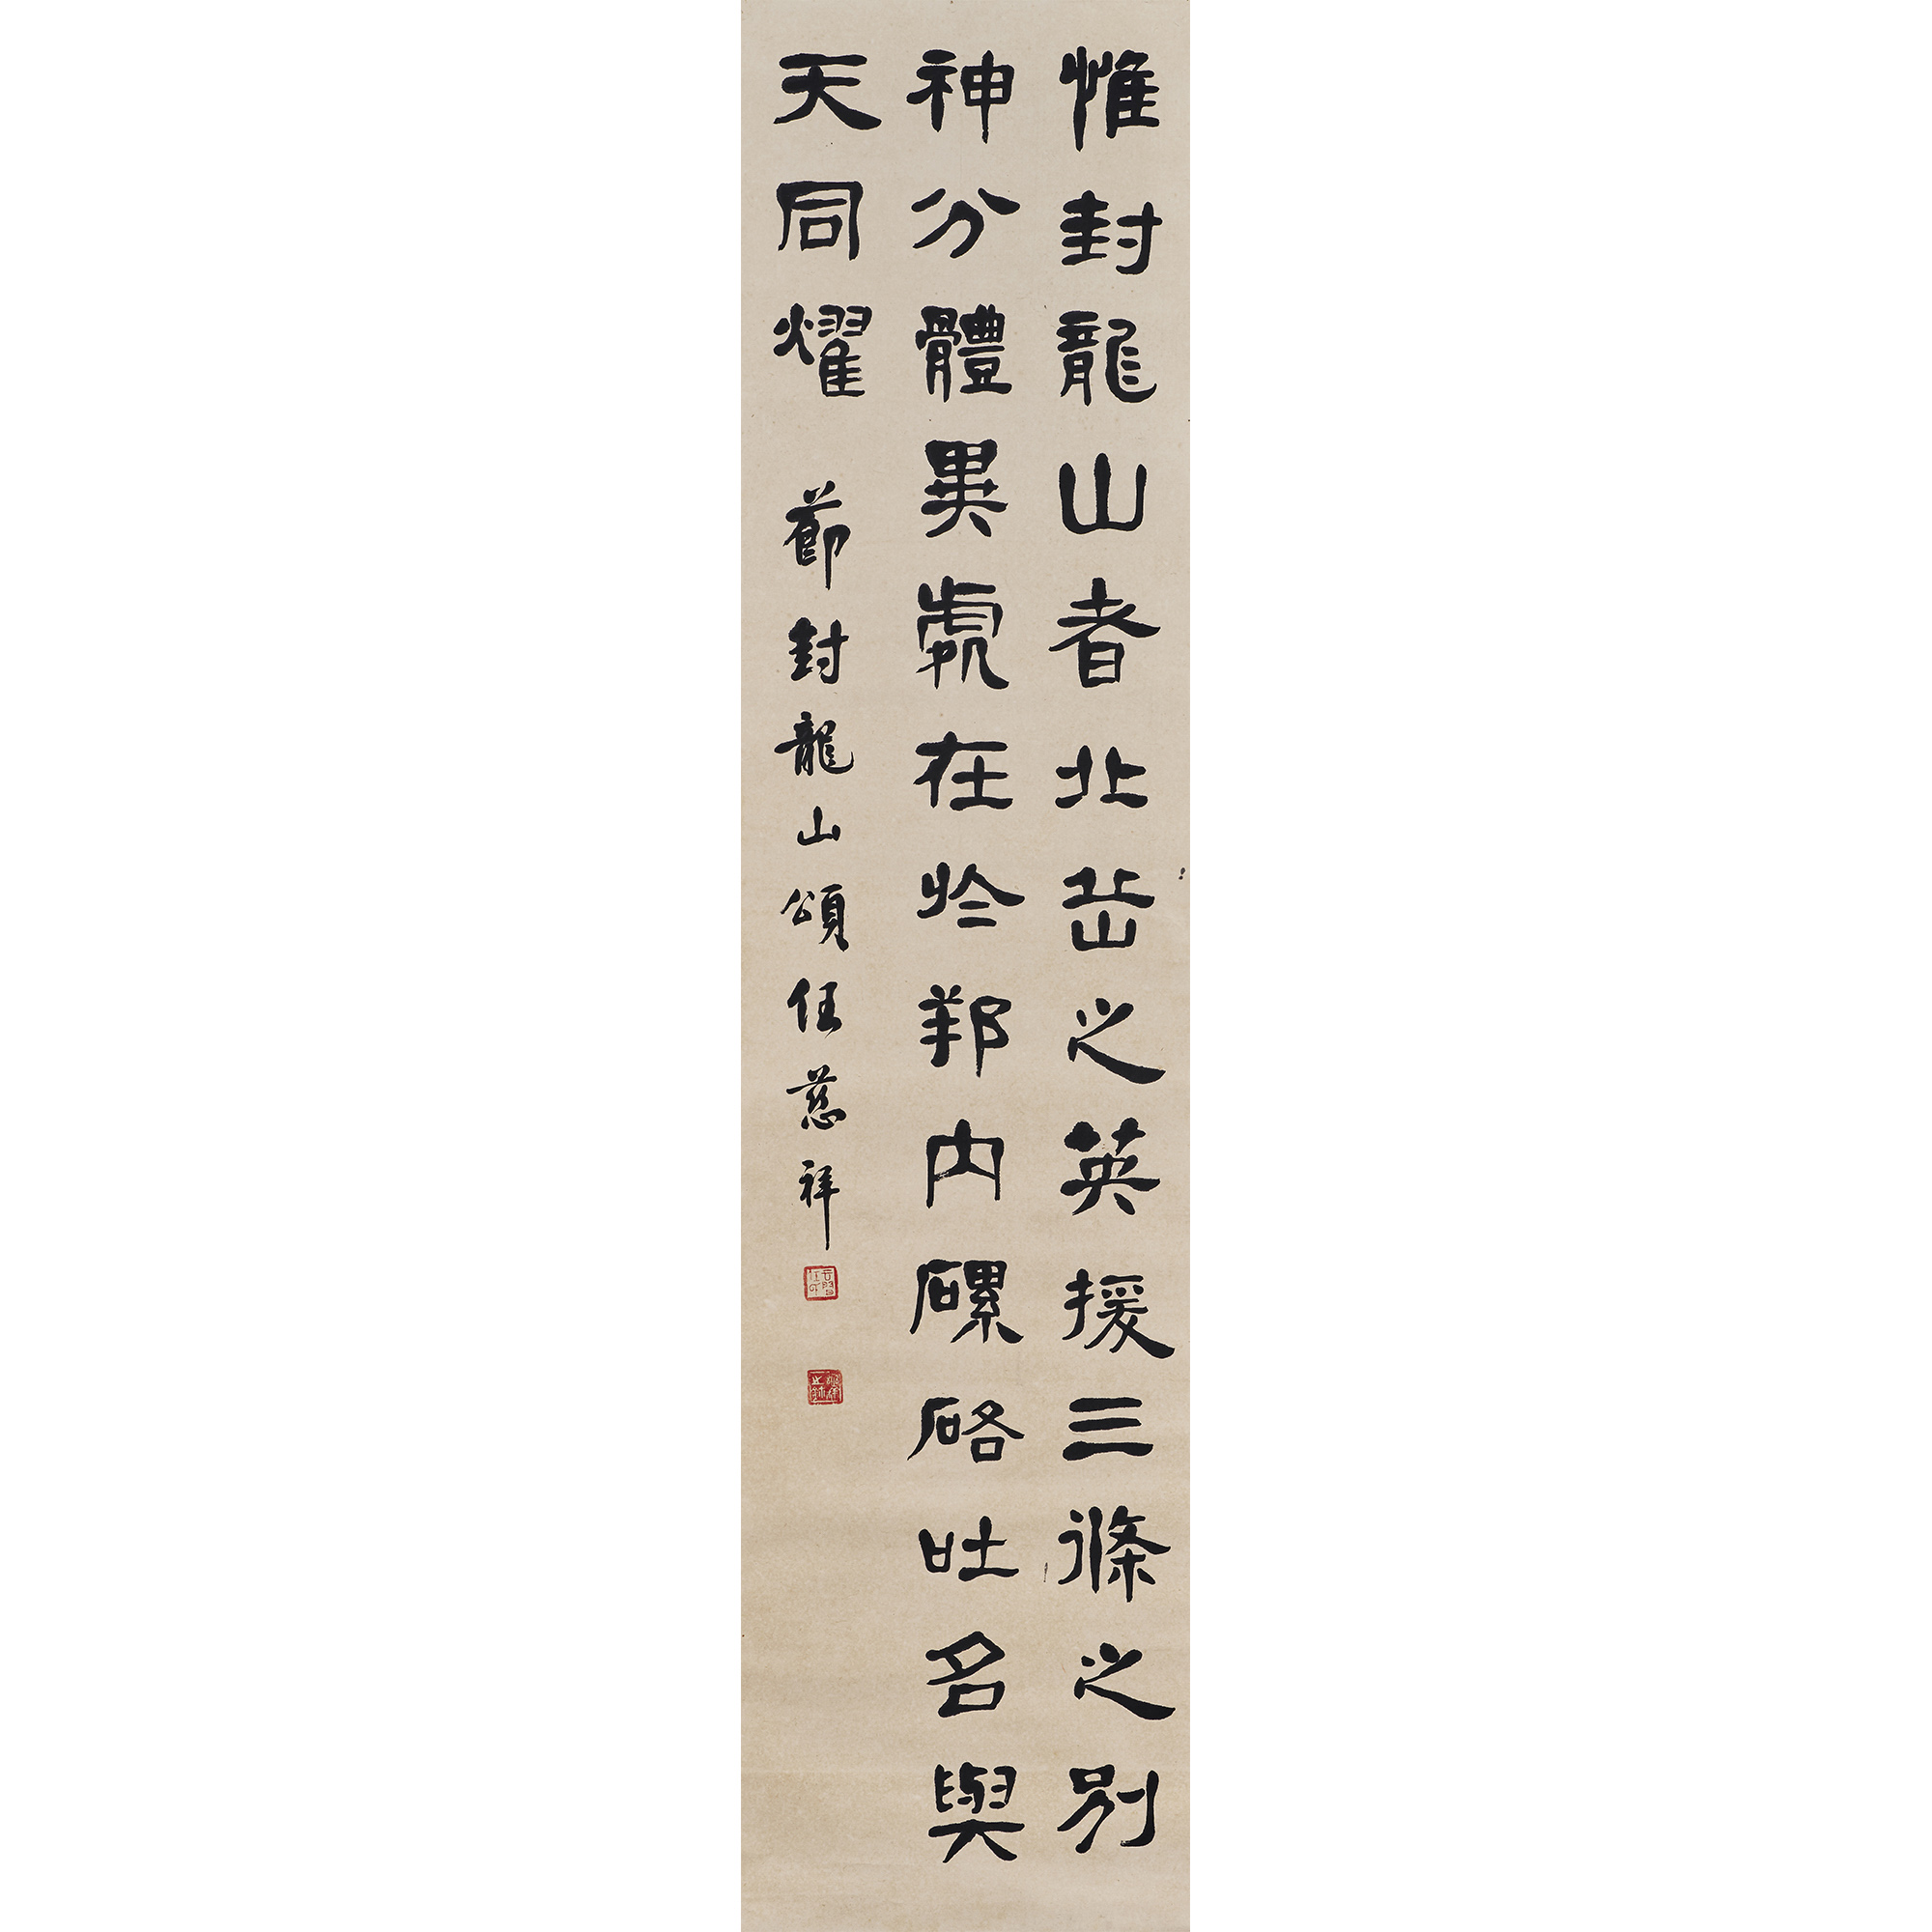 惟封龍山者北岳之英援三條之別
神分體異處在於邦內磥硌吐名與
天同耀 節封龍山頌任慈祥